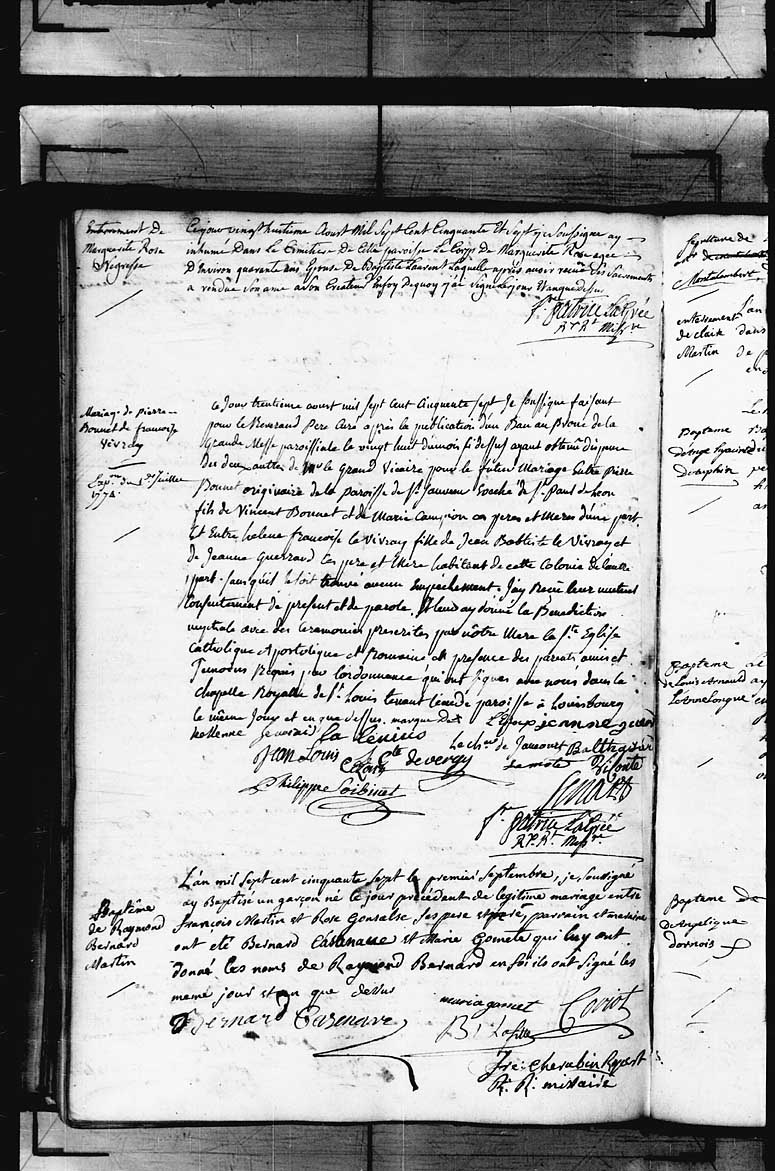 Enterrement de
Marguerite Rose
Négresse
Cejour vingt huitieme Aoust Mil Sept Cent Cinquante Et Sept je Soussigne ay
inhumé Dans le Cimitiere De Cette paroisse Le Corp de Marguerite Rose agée
D'Environ quarante ans Epouse de Baptiste Laurent Laquelle après avoir recue Ses Sacrements
a rendue Son ame a son Createur Enfoy Dequoy j'ai Signé Lejour Et an que dessus
f. patrice Lagrée
R. Rt Miss.re
Mariage de pierre
Bonnet & francoise
Vivray
Exp.on du 1er Juillet
1774
Ce Jour trentieme aoust mil sept cent cinquante sept Je soussigné faisant
pour le Reverand Pere Curé après la publication d'un Ban au Prone de la
Grande Messe paroissiale le vingt huit du mois si dessus ayant obtenu dispense
Des deux autres de le Grand Vicaire pour le futur Mariage Entre Pierre
Bonnet originaire de la paroisse de St. Sauveur Evéché de St. Paul de Leon
fils de Vincent Bonnet et de Marie Campion ces peres et Meres d'une part
Et Entre helene francoise le Vivray fille de Jean Batiste le Vivray et
de Jeanne Guerrand ses pere et Mere habitant de cette Colonie de l'autre
part. sans quil se soit trouvé aucun Empéchement. J'ay Recu leur mutuel
Consentement de present et de parole, et leur ay donné la Benediction
nuptiale avec des Ceremonies prescrites par nôtre Mere la Ste Eglise
Catholique Apostolique et Romaine en presence des parents amis et
Temoins Requis par l'ordonnance qui ont signés avec nous dans la
Chapelle Royalle de St. Louis tenant lieu de paroisse à Louisbourg
le même Jour et an que dessus. marque De
L'Epoux jeanne
La
Jean Louis
Cte de vergy
Le ch.er de Jaucourt Balthazar
Philippe
Lamote
Viconte
f. patrice Lagrée
R. R. Miss.re
Baptême
de Raymond
Bernard
Martin
L'an mil sept cent cinquante sept le premier septembre, je, soussigné
ay Baptisé un garçon né le jour précédant de legitime mariage entre
francois Martin et Rose Gonsalse ses pere et mere, parrain et maraine
ont été Bernard Casenave et Marie Gomete qui luy ont
donné les noms de Raymond Bernard en foi ils ont signé les
meme jour et an que dessus
Bernard Casenave
maria
Coriot
B. Lafitte
fre: cherubin Ropert
R. R. missaire
Sepulture de
Montalembert
enterrement
de claire
Martin
L'an
dans
de
Bapteme
Dauphin
Bapteme
de Louis Arnaud
Bapteme De
D'Angelique
dornois